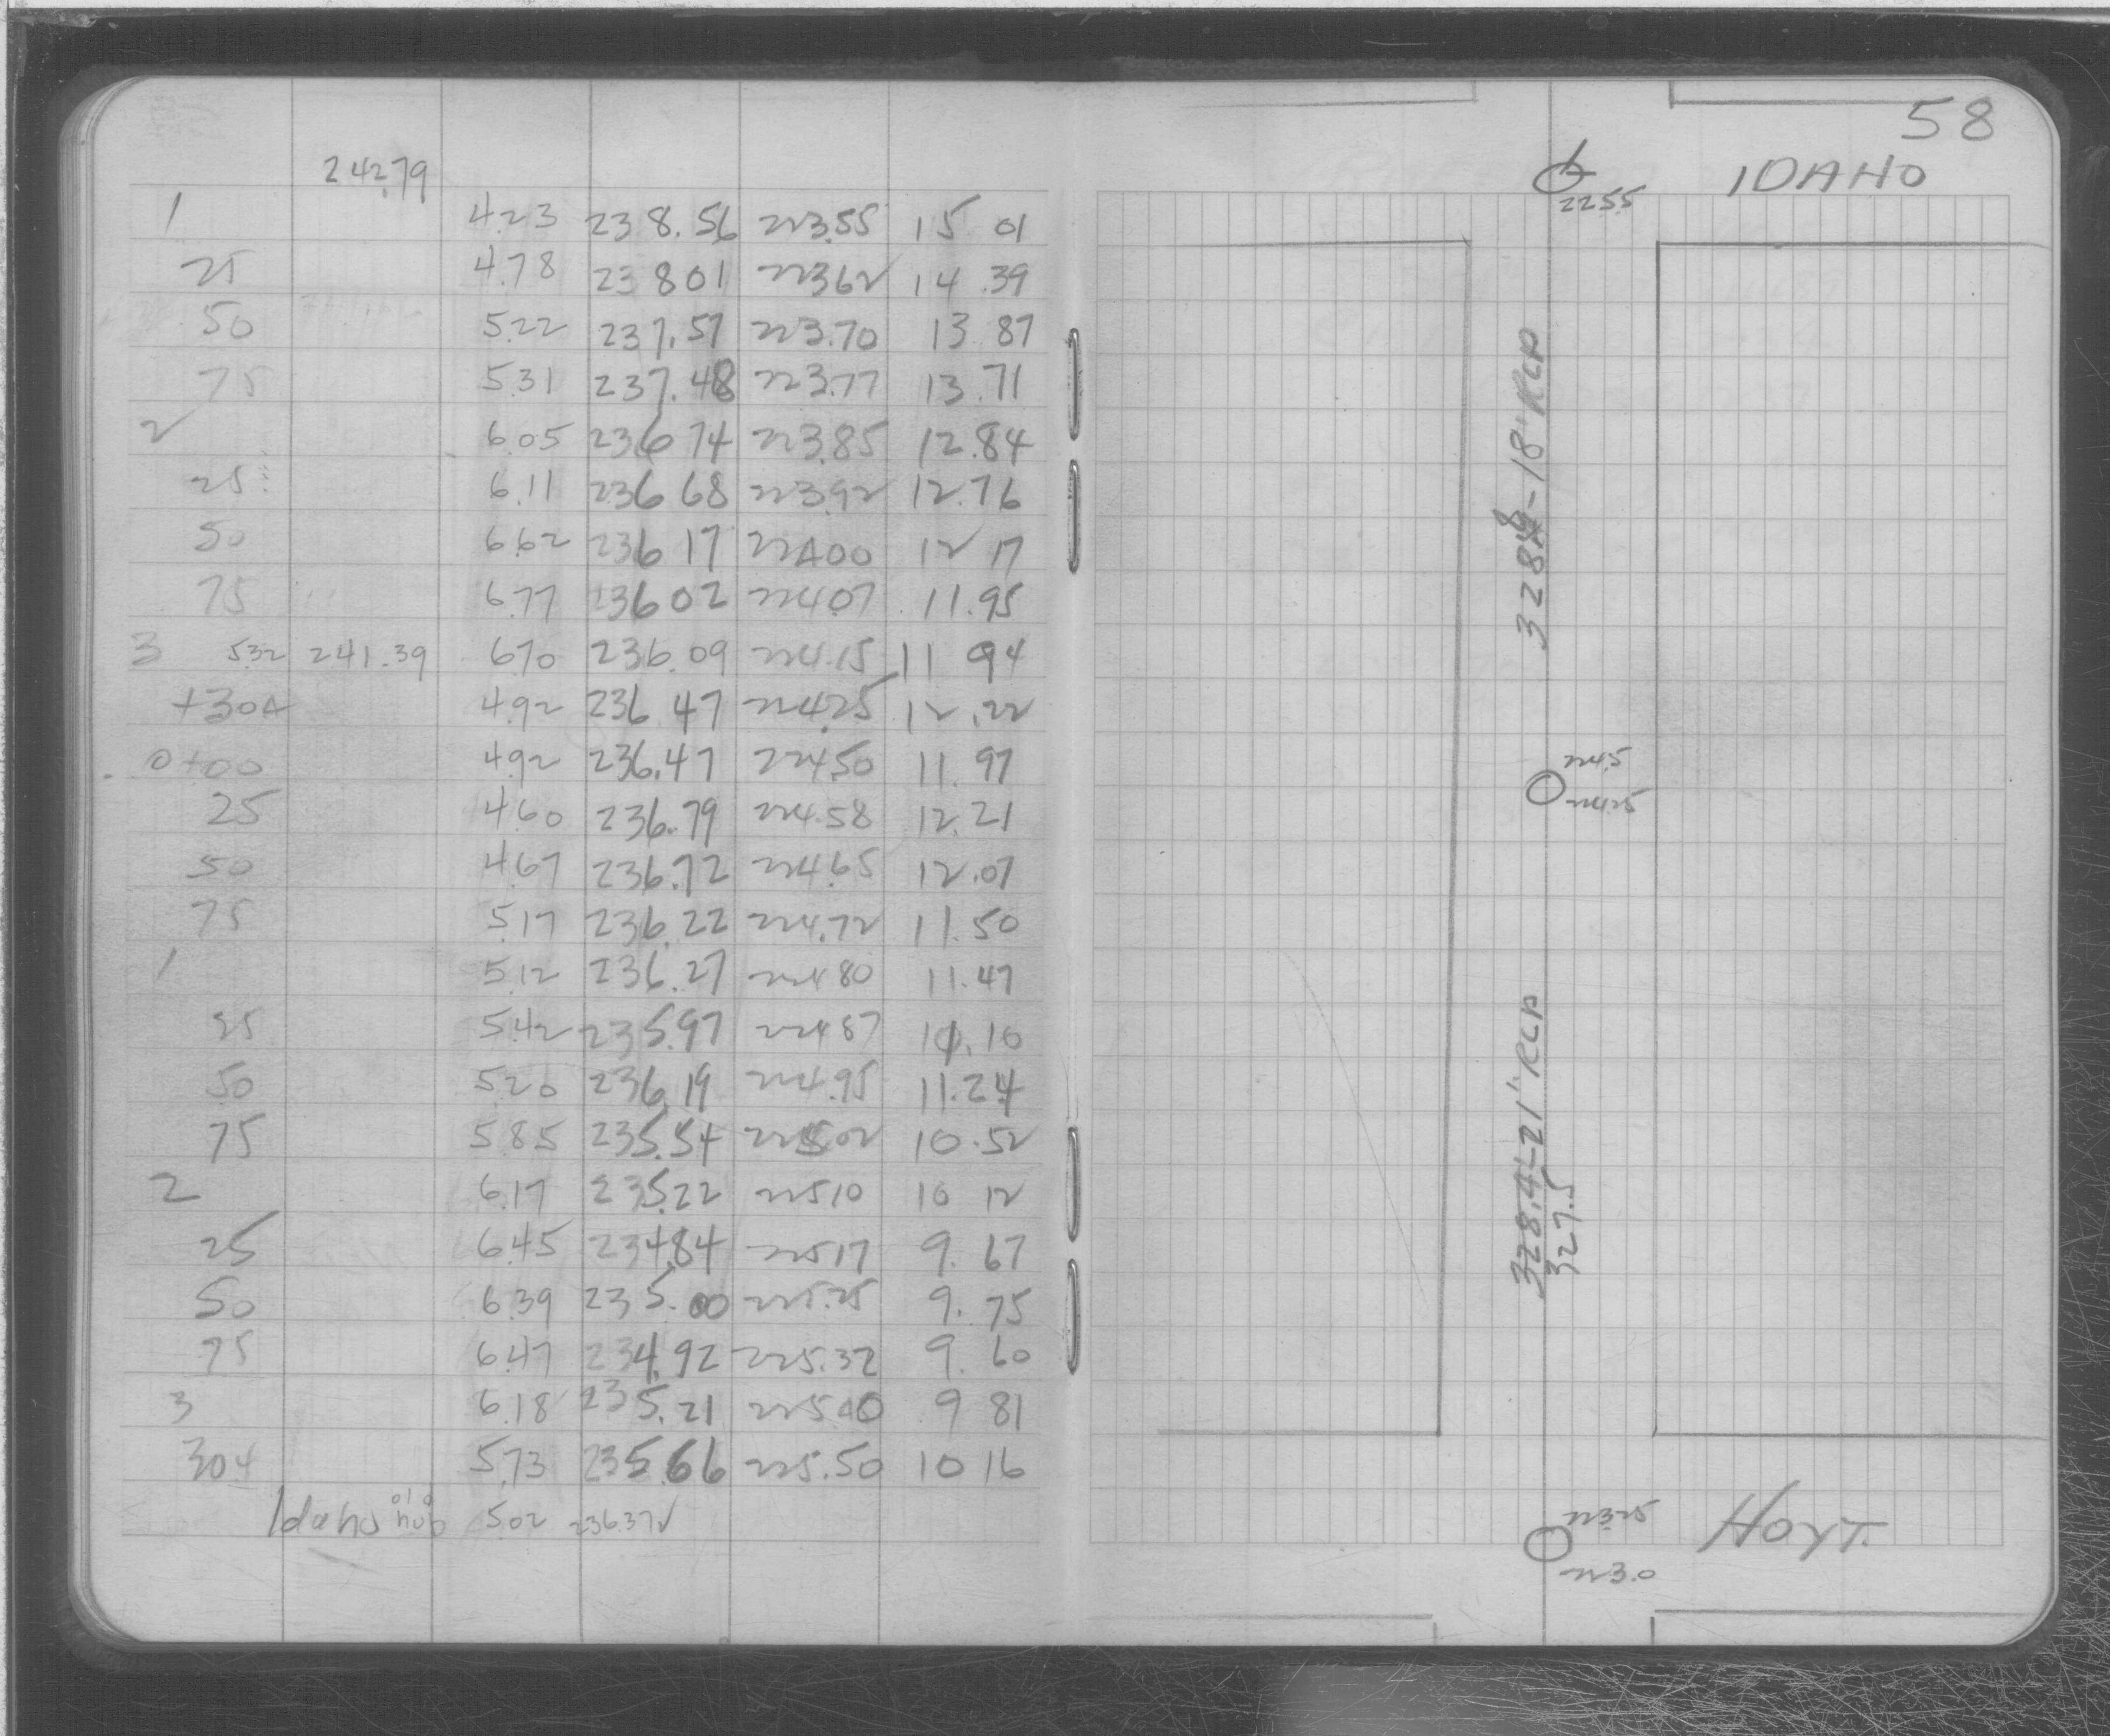 242.79
1 4.23 238.56 223.55 15.01
25 4.78 238 01 223 62 14.39
50 5.22 237.57 223.70 13 87
75 5.31 237.48 223.77 13.71
2 6.05 236 74 223.85 12.84
25 6.11 236 68 223.92 12.76
50 6.62 236 17 224 00 12 17
75 6.77 236 02 224.07 11.95
3 5.32 241.39 6.70 236.09 224.15 11 94
+304 4.92 236 47 224.25 12.22
0+00 4.92 236.47 224.50 11.97
25 4.60 236.79 224.58 12.21
50 4.67 236.72 224.65 12.07
75 5.17 236.22 224.72 11.50
1 5.12 236.27 224 80 11.47
25 5.42 235.97 224 87 11.10
50 5.20 236.19 224.95 11.24
75 5.85 235.54 225.02 10.52
2 6.17 235.22 225 10 10 12
25 6.45 234.84 225 17 9.67
50 6.39 235.00 225.25 9.75
75 6.47 234.92 225.32 9.60
3 6.18 235.21 225 40 9 81
304 5.73 235.66 225.50 10 16
Idaho hub 5.02 236.37
58
IDAHO
2255
18" RCP
224.5
224.25
328.4-21" RCP
327.5
223.25
HOYT.
223.0